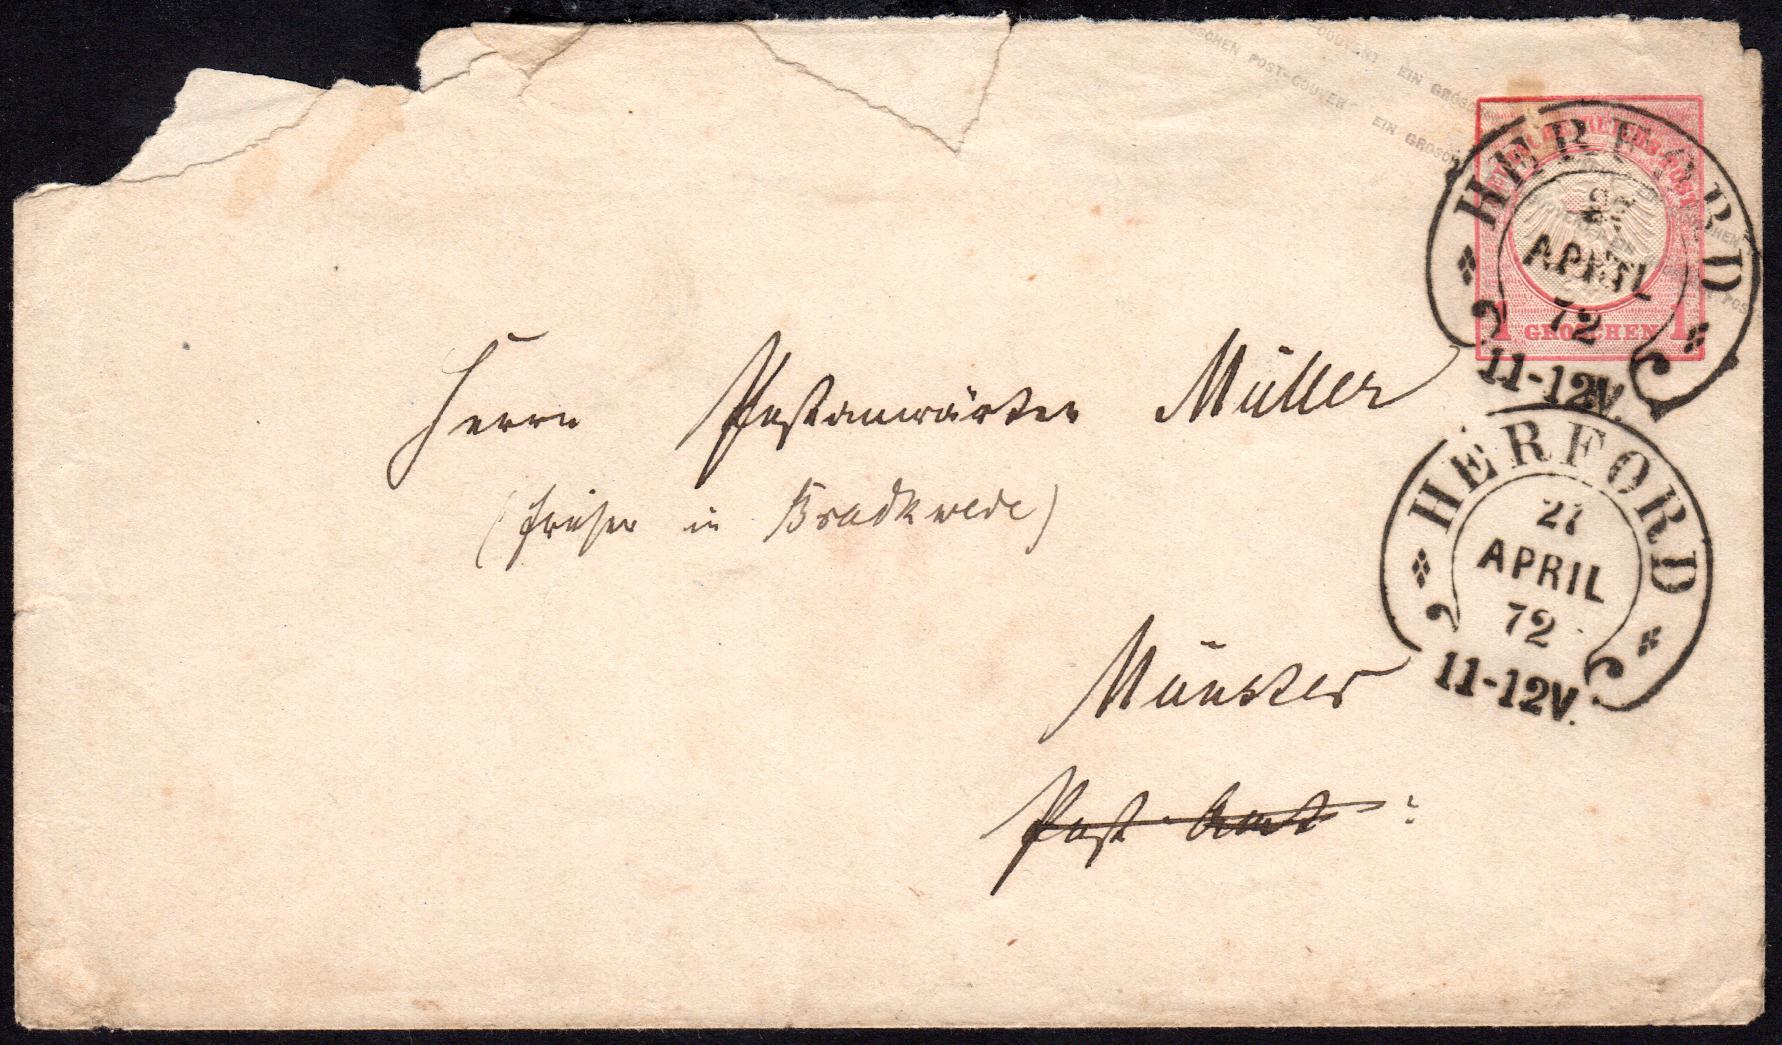 GROSCHEN POST-COUVERT EIN GROSCHEN
COUVERT EIN GROSCHEN
DEUTSCHE REICHS-POST
1 GROSCHEN 1
HERFORD
APRIL
72
11-12V.
HERFORD
21
APRIL
72
11-12V.
Herrn Postanwärter Müller
(früher in Brackwede)
Münster
Post-Amt